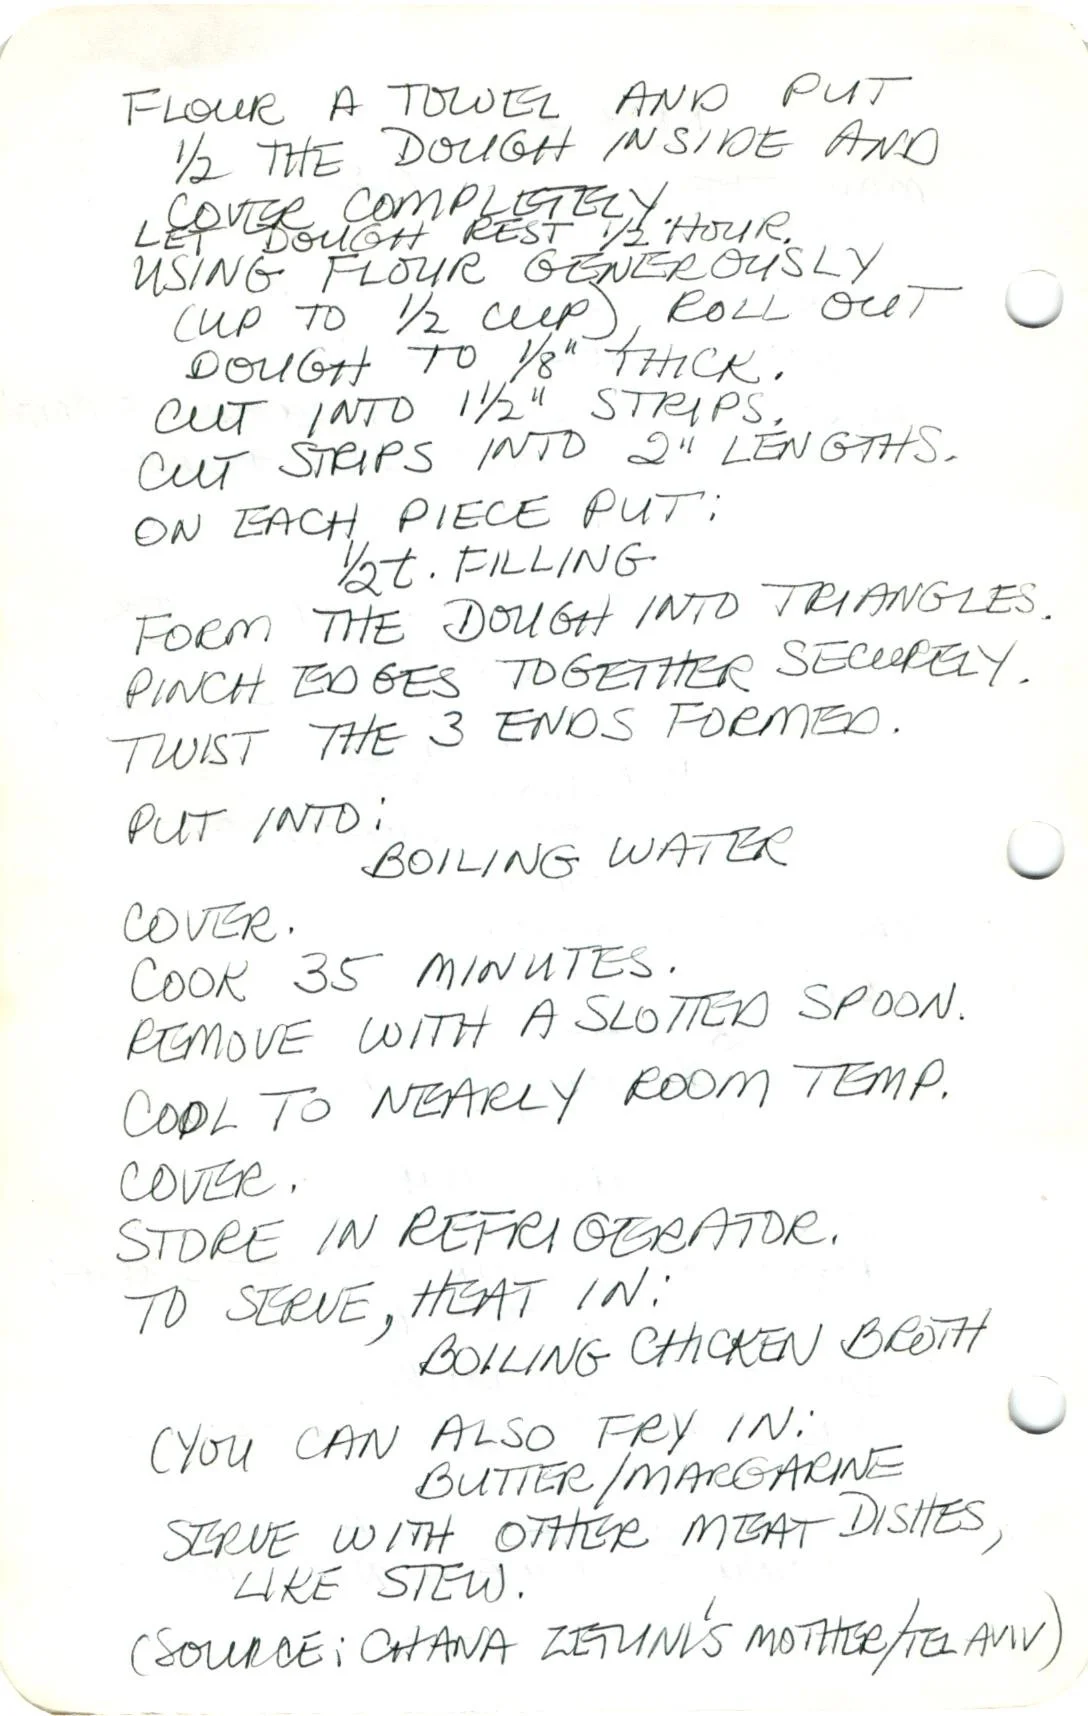 FLOUR A TOWEL AND PUT
1/2 THE DOUGH INSIDE AND
COVER COMPLETELY.
LET DOUGH REST 1/2 HOUR.
USING FLOUR GENEROUSLY
(UP TO 1/2 CUP), ROLL OUT
DOUGH TO 1/8" THICK.
CUT INTO 1 1/2" STRIPS.
CUT STRIPS INTO 2" LENGTHS.
ON EACH PIECE PUT:
1/2 t. FILLING
FORM THE DOUGH INTO TRIANGLES.
PINCH EDGES TOGETHER SECURELY.
TWIST THE 3 ENDS FORMED.
PUT INTO:
BOILING WATER
COVER.
COOK 35 MINUTES.
REMOVE WITH A SLOTTED SPOON.
COOL TO NEARLY ROOM TEMP.
COVER.
STORE IN REFRIGERATOR.
TO SERVE, HEAT IN:
BOILING CHICKEN BROTH
(YOU CAN ALSO FRY IN:
BUTTER/MARGARINE
SERVE WITH OTHER MEAT DISHES,
LIKE STEW.
(SOURCE: CHANA ZETUNI'S MOTHER/TEL AVIV)